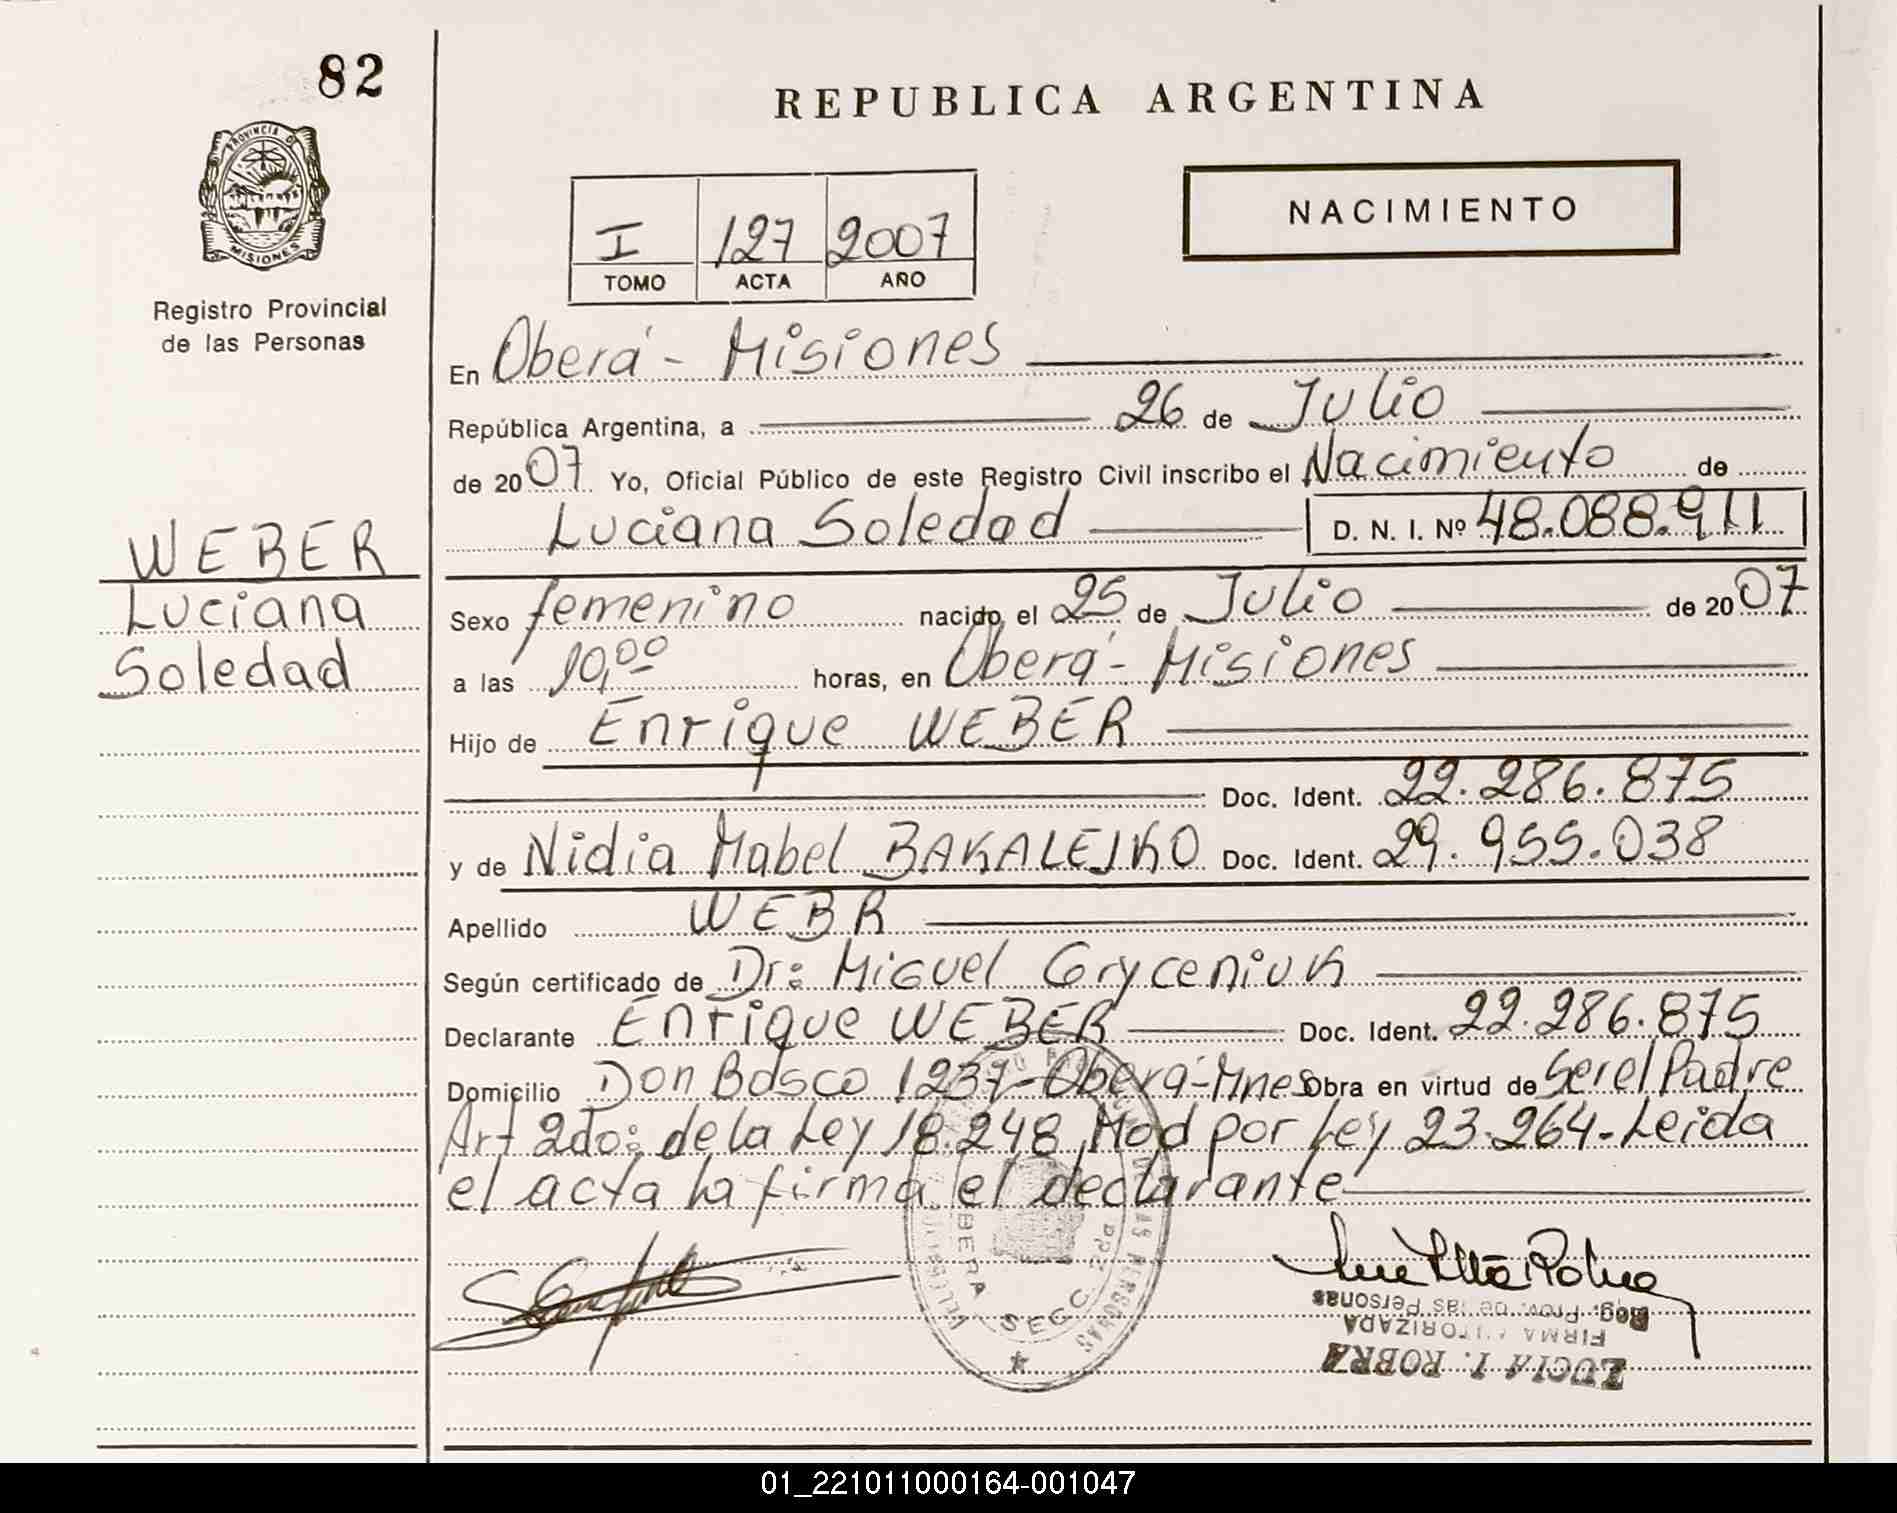 82
PROVINCIA DE
MISIONES
Registro Provincial
de las Personas
WEBER
Luciana
Soledad
REPUBLICA ARGENTINA
I 127 2007
TOMO ACTA AÑO
NACIMIENTO
En Oberá - Misiones
República Argentina, a 26 de Julio
de 2007 Yo, Oficial Público de este Registro Civil inscribo el Nacimiento de
Luciana Soledad D. N. I. Nº 48.088.911
Sexo femenino nacido el 25 de Julio de 2007
a las 10,00 horas, en Oberá - Misiones
Hijo de Enrique WEBER
Doc. Ident. 22.286.875
y de Nidia Mabel BAKALEJKO Doc. Ident. 29.955.038
Apellido WEBR
Según certificado de Dr: Miguel Gryceniuk
Declarante Enrique WEBER Doc. Ident. 22.286.875
Domicilio Don Bosco 1237-Oberá-Mnes Obra en virtud de Ser el Padre
Art 2do: de la Ley 18.248, Mod por Ley 23.264-Leida
el acta la firma el declarante
OBERA SECC. 2da
PERSONAS
Reg. Prov. de las Personas
FIRMA AUTORIZADA
LUCIA I. ROBRA
01_221011000164-001047